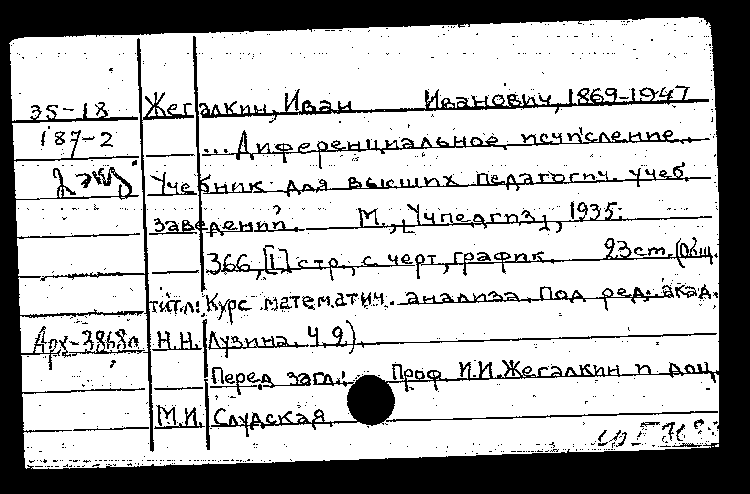 35-18 Жегалкин, Иван Иванович, 1869-1947
187-2 ... Диференциальное исчисление.
2 экз Учебник для высших педагогич. учеб.
заведений. М., [Учпедгиз], 1935.
366, [1] стр., с черт., график. 23 cm. (Общ.
титл: Курс математич. анализа. Под ред. акад.
Арх-3868а Н.Н. Лузина. Ч. 2).
Перед загл.: Проф И.И. Жегалкин и доц.
М.И. Слудская.